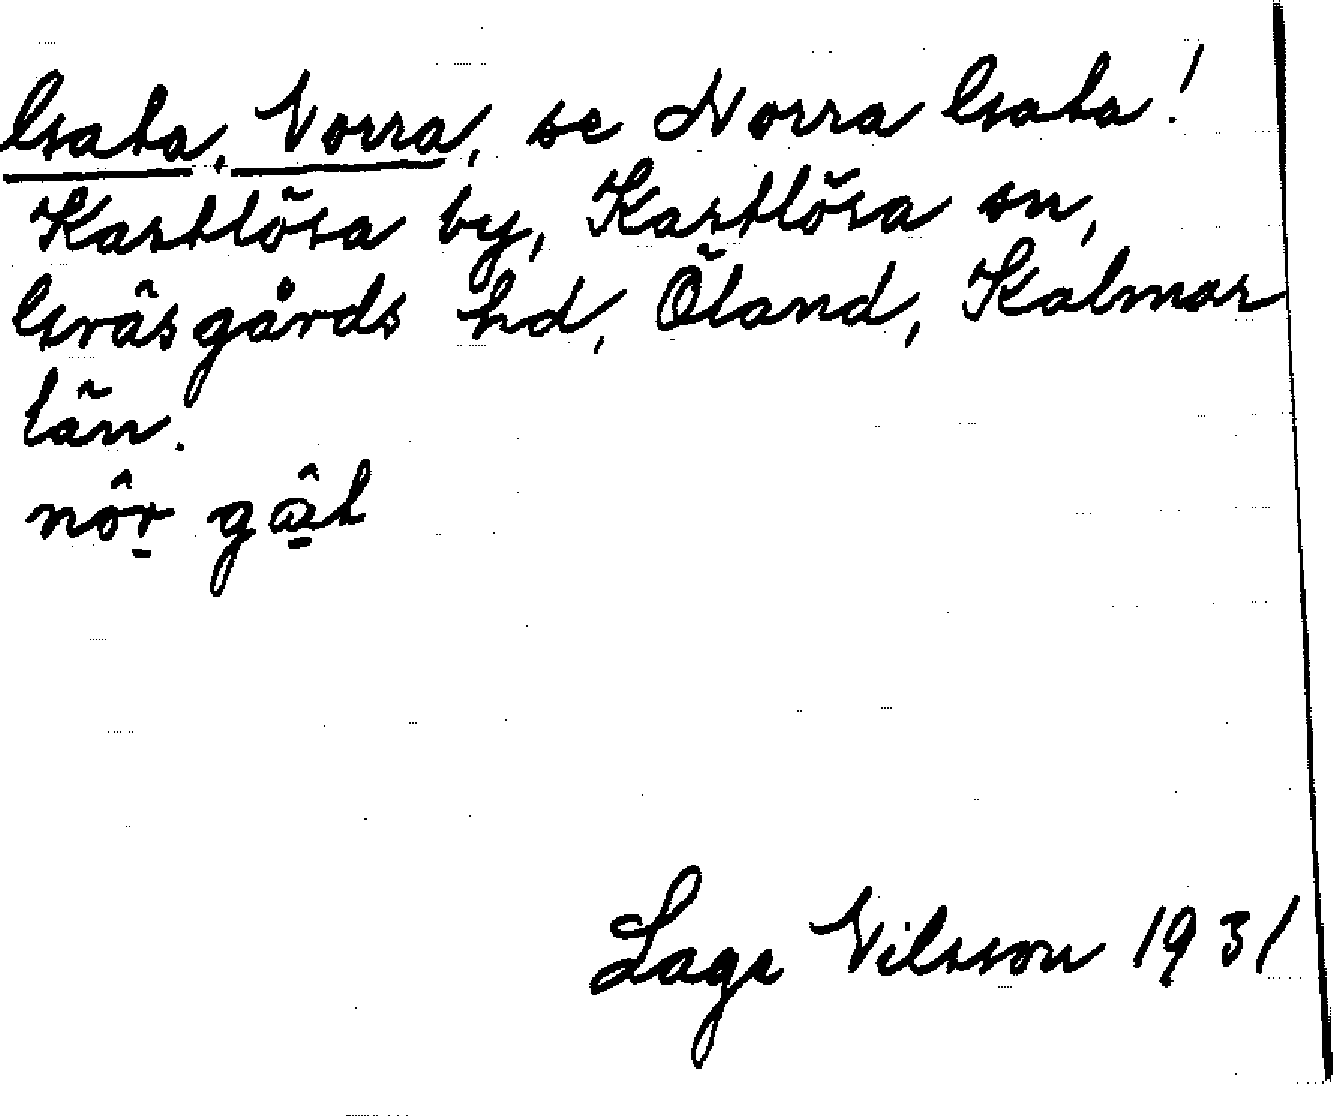 Gata, Norra, se Norra Gata!
Kastlösa by, Kastlösa sn,
Gräsgårds hd, Öland, Kalmar
län.
nôr gât
Lage Nilsson 1931